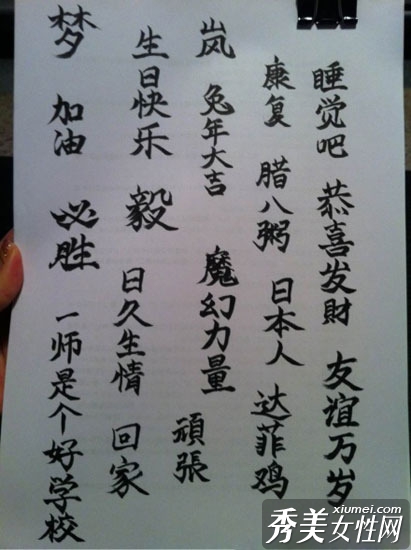 梦
加油
必胜
一师是个好学校
生日快乐
毅
日久生情
回家
岚
兔年大吉
魔幻力量
頑張
康复
腊八粥
日本人
达菲鸡
睡觉吧
恭喜发财
友谊万岁
xiumei.com
秀美女性网